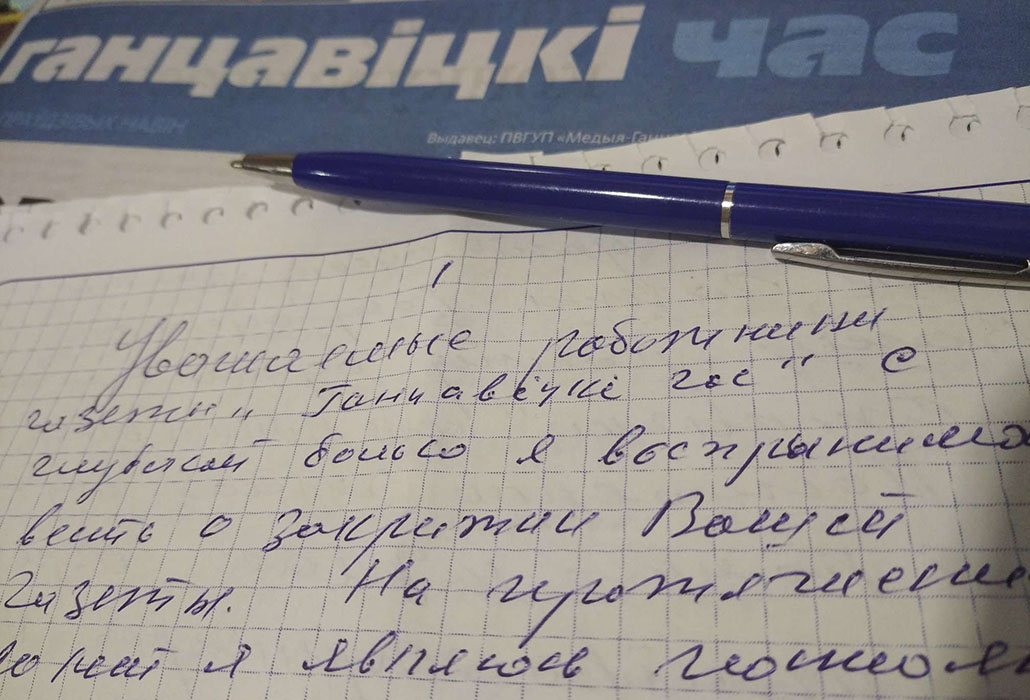 ганцавіцкі час
Выдавец: ПВГУП «Медыя-Ганц
1
Уважаемые работники
газеты „Ганцавіцкі час" С
глубокой болью я воспринимаю
весть о закритии Вашей
Газеты. На протяжении
лет я являюсь